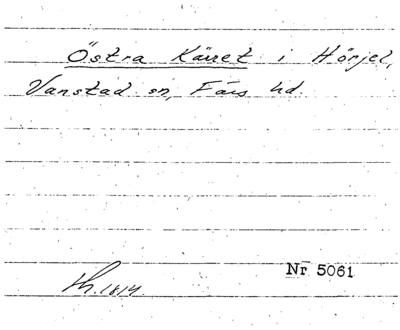 Östra Käret i Hörjel,
Vanstad sn, Färs hd.
Nr 5061
Lh. 1814.